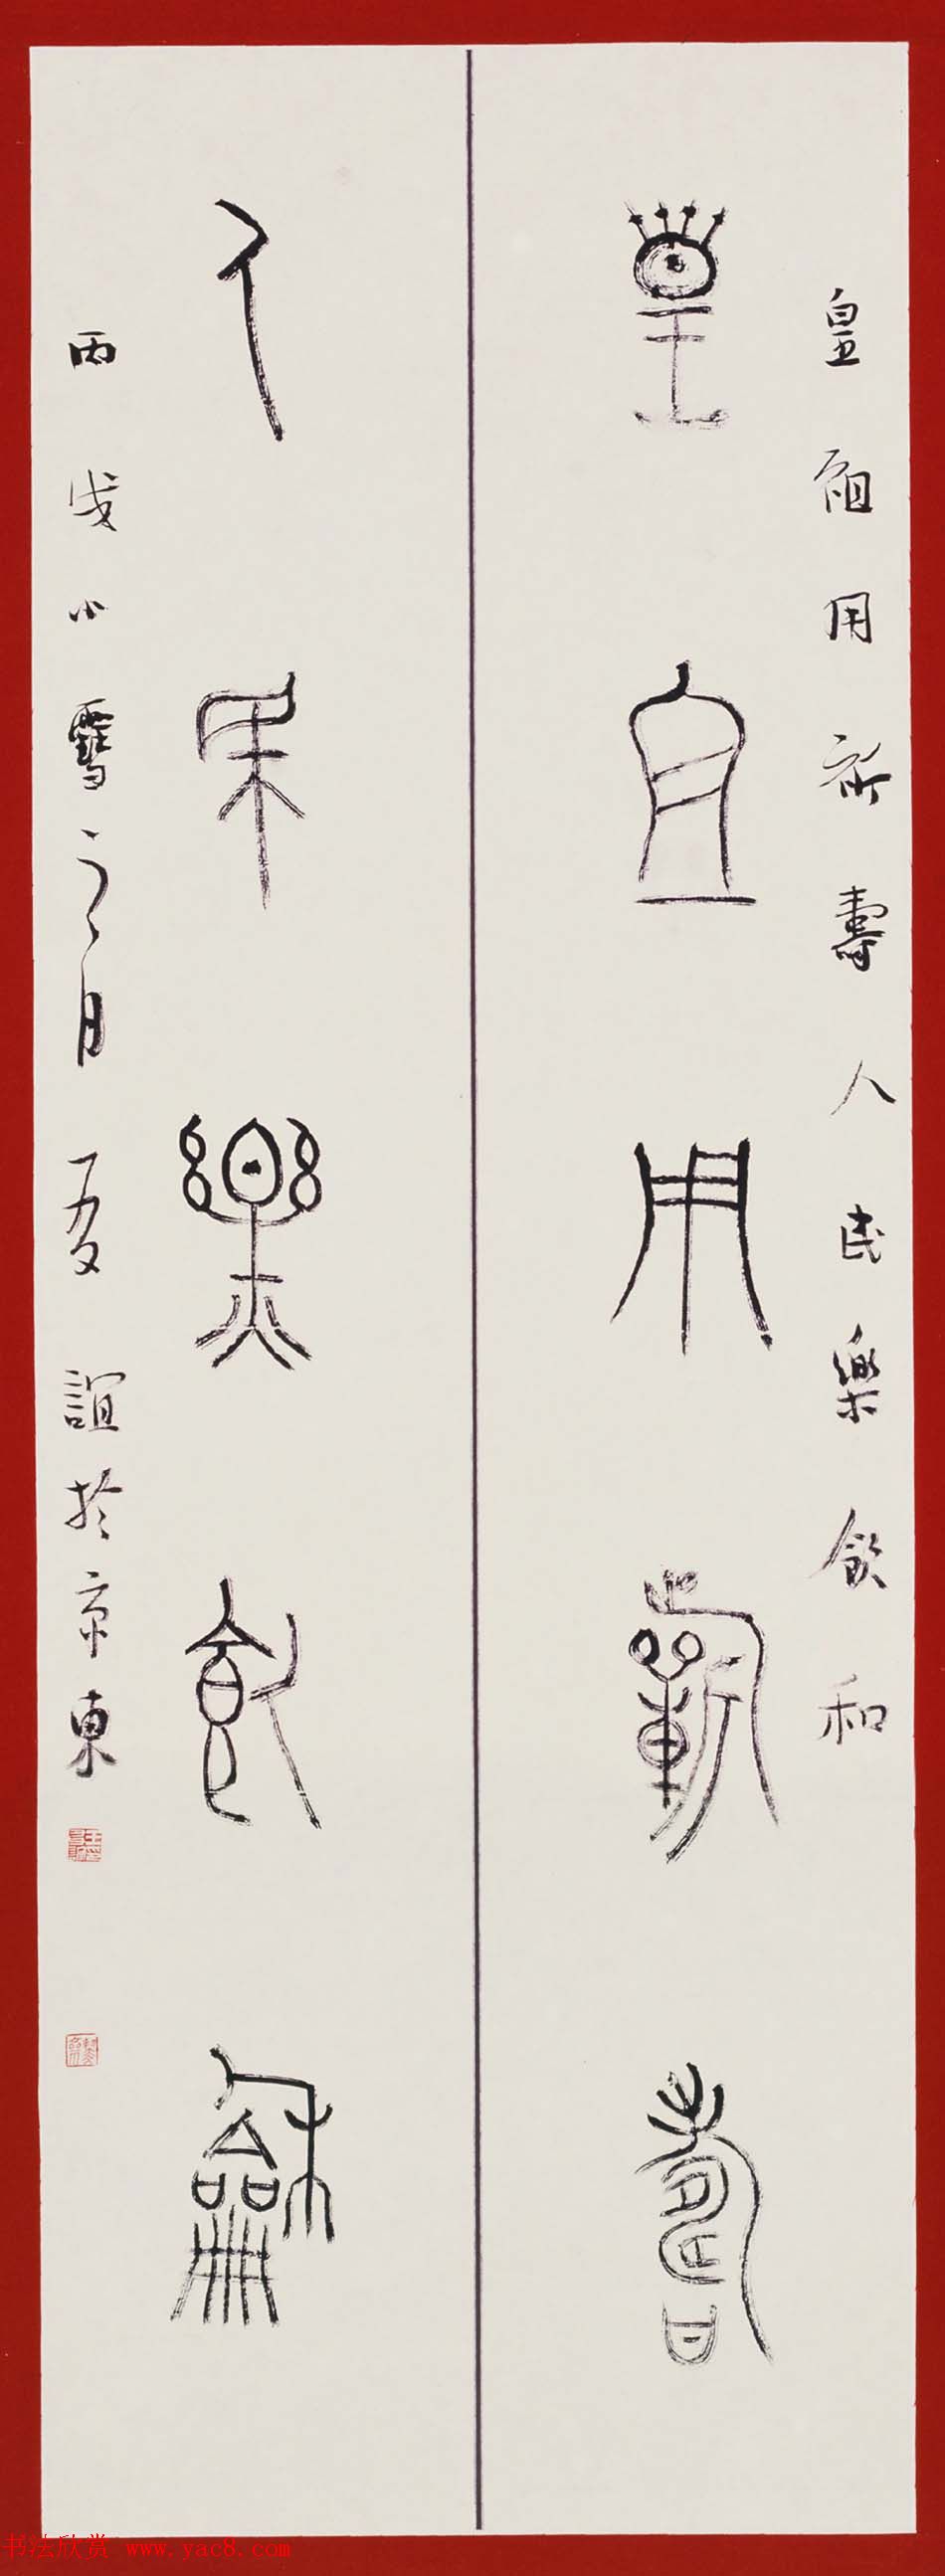 皇祖用祈壽人民樂飲和
皇且用𣄨壽
人民樂飲龢
丙戌小雪之月友誼於京東
书法欣赏 www.yac8.com